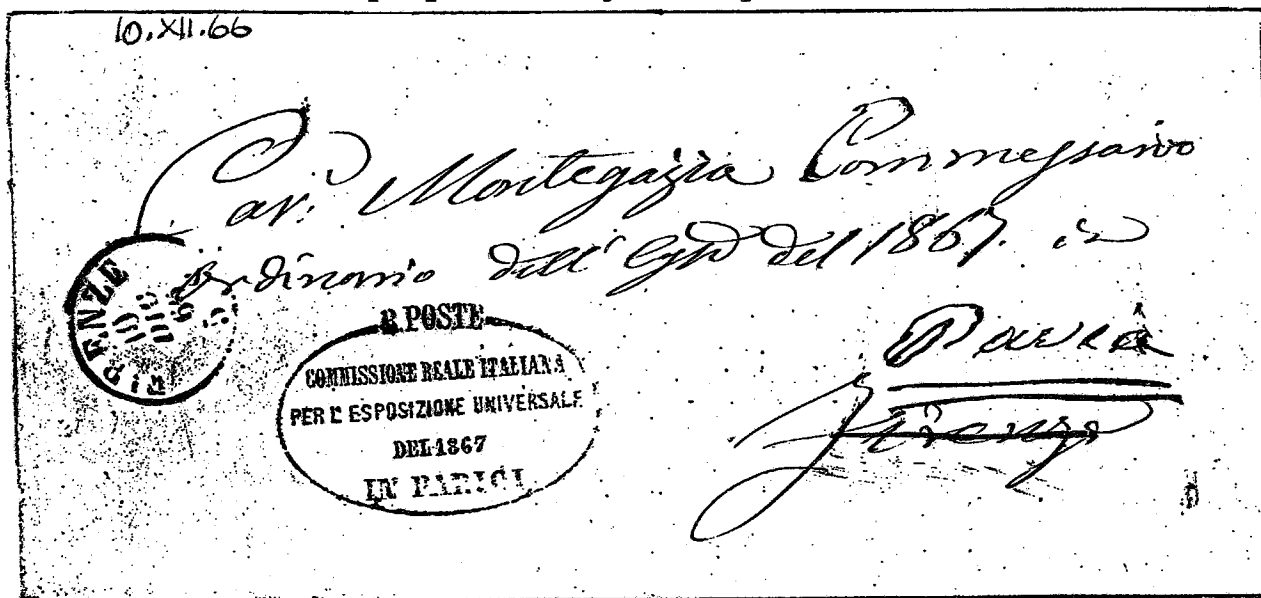 10.XII.66
Cav. Montegazza Commessario
ordinario dell' Espne del 1867. in
Pavia
Firenze
FIRENZE
10
DIC
66
R. POSTE
COMMISSIONE REALE ITALIANA
PER L'ESPOSIZIONE UNIVERSALE
DEL 1867
IN PARIGI